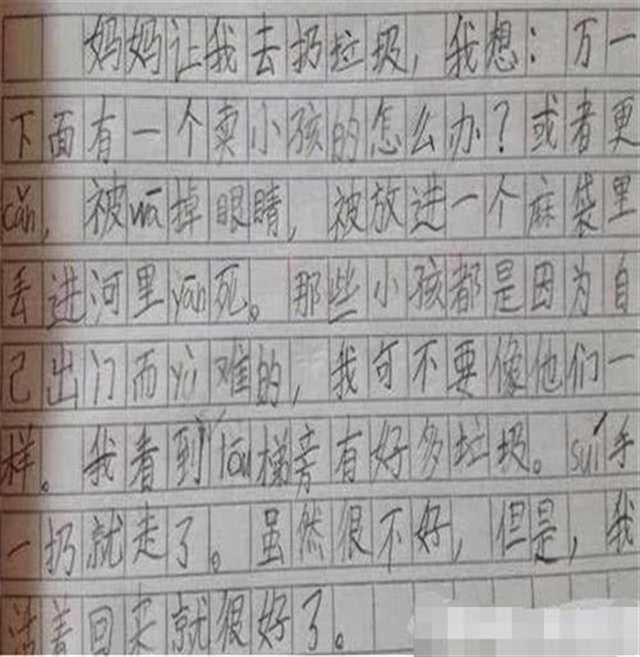 妈妈让我去扔垃圾，我想：万一
下面有一个卖小孩的怎么办？或者更
cǎn，被wā掉眼睛，被放进一个麻袋里
丢进河里yān死。那些小孩都是因为自
己出门而yù难的，我可不要像他们一
样。我看到lóu梯旁有好多垃圾。suí手
一扔就走了。虽然很不好，但是，我
活着回来就很好了。